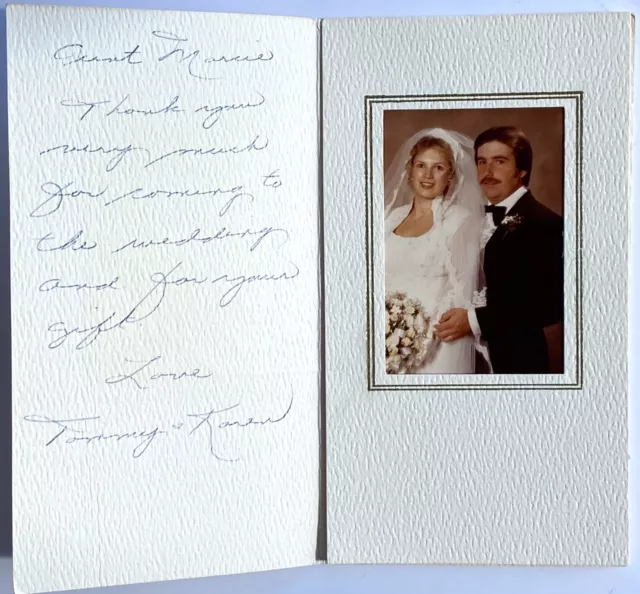 Aunt Marie
Thank you
very much
for coming to
the wedding
and for your
gift
Love
Tommy & Karen